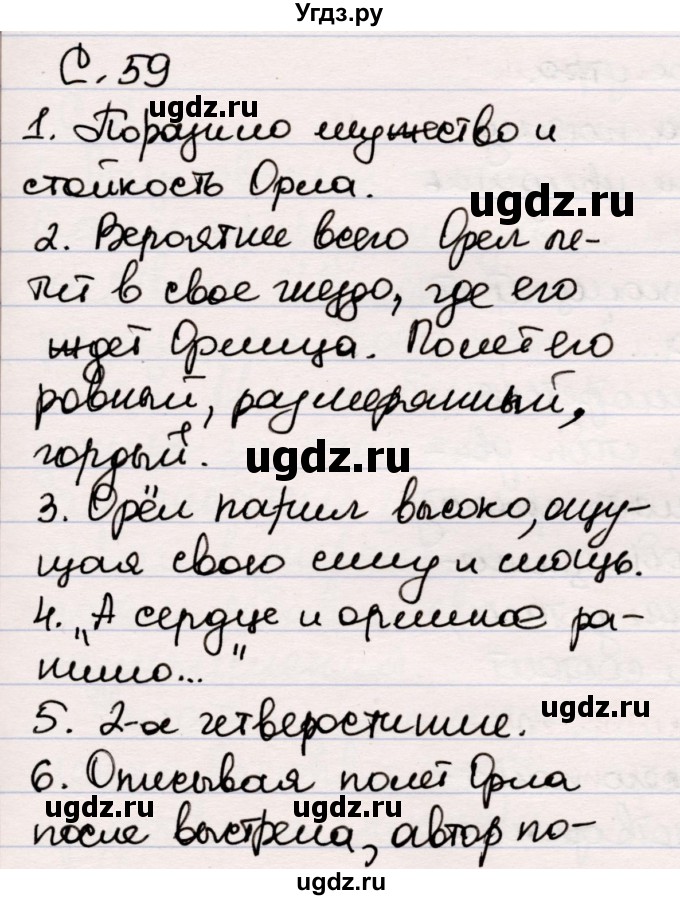 Угдз.ру
С. 59
ugdz.ru
1. Поразило мужество и
стойкость Орла.
ugdz.ru
2. Вероятнее всего Орел ле-
тит в свое гнездо, где его
ждет Орлица. Полет его
ровный, размерянный,
гордый.
ugdz.ru
3. Орёл парил высоко, ощу-
щая свою силу и мощь.
4. "А сердце и орлиное ра-
нимо..."
ugdz.ru
5. 2-а четверостишие.
6. Описывая полет Орла
ugdz.ru ugdz.ru
после выстрела, автор по-
ugdz.ru